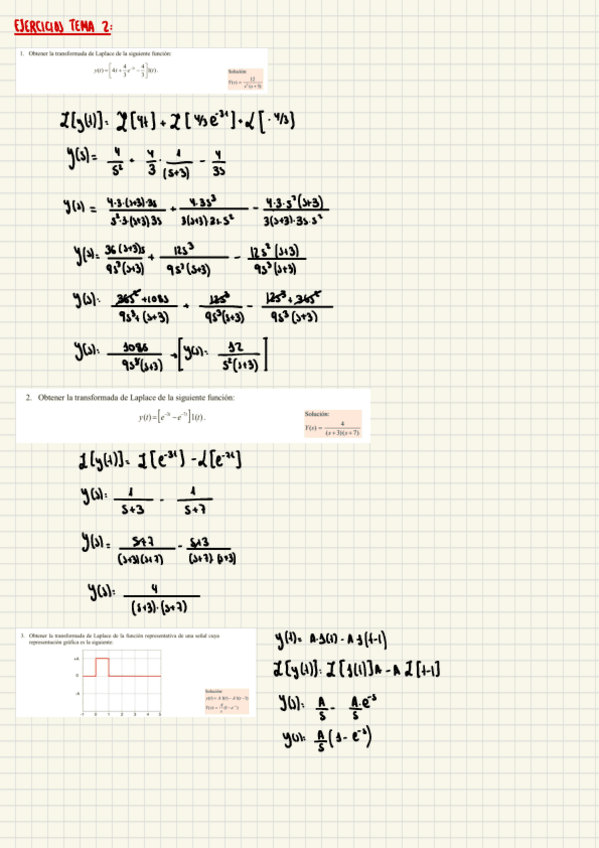 EJERCICIOS TEMA 2:
1. Obtener la transformada de Laplace de la siguiente función:
y(t) = [4t + 4/3 e^-3t - 4/3] 1(t).
Solución
Y(s) = 12/s²(s+3)
L[y(t)] = L[4t] + L[4/3 e^-3t] + L[-4/3]
y(s) = 4/s² + 4/3 · 1/(s+3) - 4/3s
y(s) = 4·3·(s+3)·3s/s²·3·(s+3)3s + 4·3s³/3(s+3)·3s·s² - 4·3·s²(s+3)/3(s+3)·3s·s²
y(s) = 36(s+3)s/9s³(s+3) + 12s³/9s³(s+3) - 12s²(s+3)/9s³(s+3)
y(s): 36s²+108s/9s³+(s+3) + 12s³/9s³(s+3) - 12s³+36s²/9s³(s+3)
y(s): 108s/9s³(s+3) → [y(s): 12/s²(s+3)]
2. Obtener la transformada de Laplace de la siguiente función:
y(t) = [e^-3t - e^-7t] 1(t).
Solución:
Y(s) = 4/(s+3)(s+7)
L[y(t)] = L[e^-3t] - L[e^-7t]
y(s): 1/s+3 - 1/s+7
y(s) = s+7/(s+3)(s+7) - s+3/(s+7)·(s+3)
y(s): 4/(s+3)·(s+7)
3. Obtener la transformada de Laplace de la función representativa de una señal cuya
representación gráfica es la siguiente:
+A
0
-A
0 1 2 3 4 5
Solución
y(t) = A·1(t) - A·1(t-1)
Y(s) = A/s (1-e^-s)
y(t) = A·1(t) - A 1(t-1)
L[y(t)]: L[1(t)]A - A L[t-1]
y(s): A/s - A·e^-s/s
y(s): A/s (1 - e^-s)